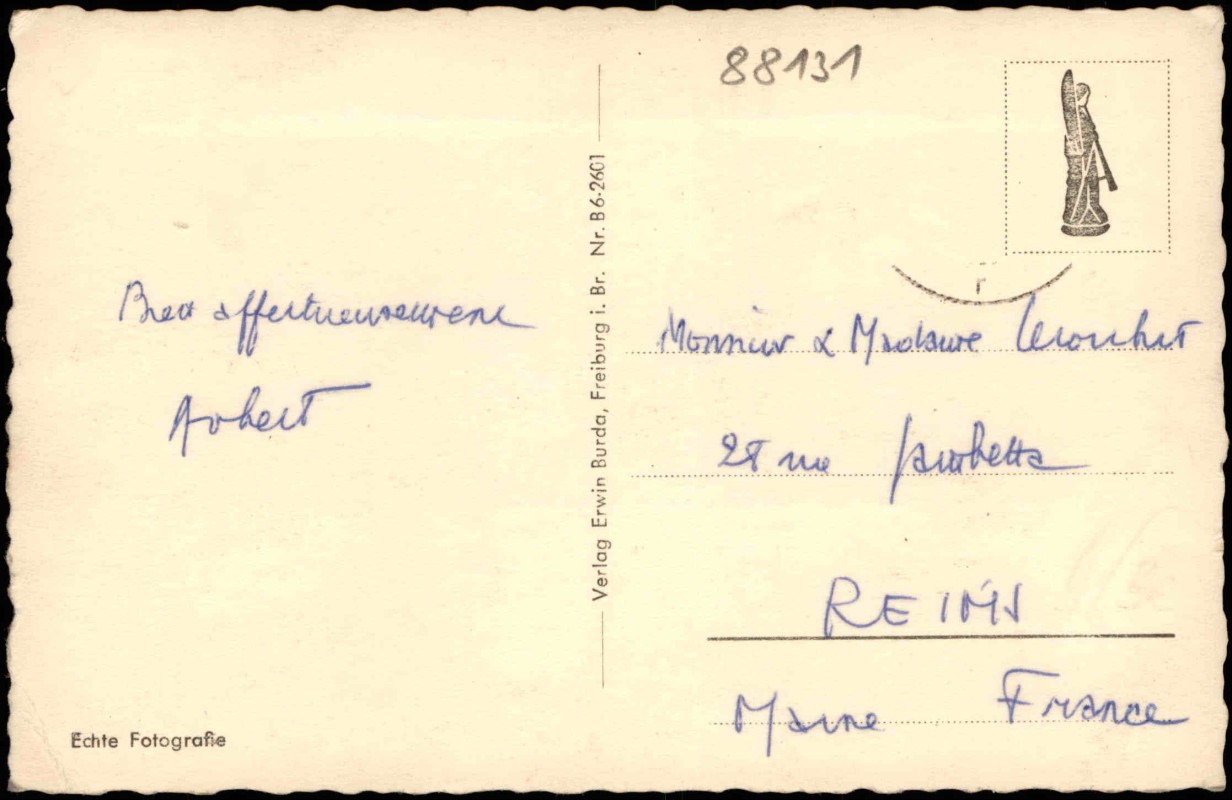 88131
Bien affectueusement
Robert
Verlag Erwin Burda, Freiburg i. Br. Nr. B6-2601
Monsieur & Madame
28 rue Gambetta
REIMS
Marne France
Echte Fotografie